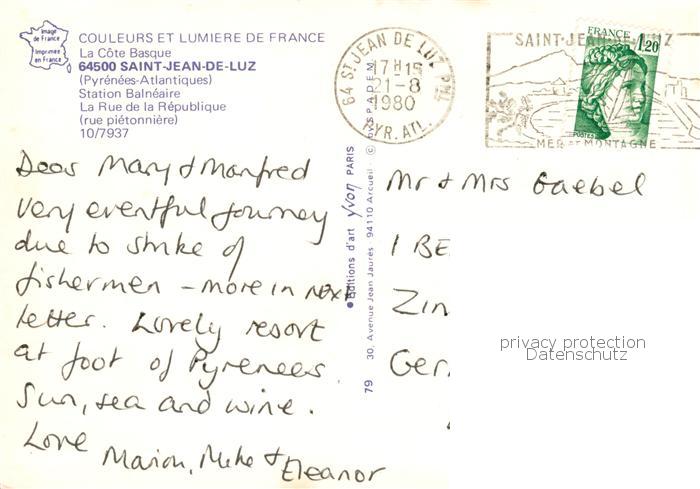 Image
de France
Imprimée
en France
COULEURS ET LUMIERE DE FRANCE
La Côte Basque
64500 SAINT-JEAN-DE-LUZ
(Pyrénées-Atlantiques)
Station Balnéaire
La Rue de la République
(rue piétonnière)
10/7937
64 ST JEAN DE LUZ PPAL
17H15
21-8
1980
PYR. ATL.
SAINT-JEAN-DE-LUZ
MER ET MONTAGNE
FRANCE
1,20
POSTES
Dear Mary & Manfred
Very eventful journey
due to strike of
fishermen – more in next
letter. Lovely resort
at foot of Pyrenees.
Sun, sea and wine.
Love
Marion, Mike & Eleanor
Editions d'art yvon PARIS
© by SPADEM
79 30, Avenue Jean Jaurès 94110 Arcueil
Mr & Mrs Gaebel
1 BE
Zin
Ger
privacy protection
Datenschutz